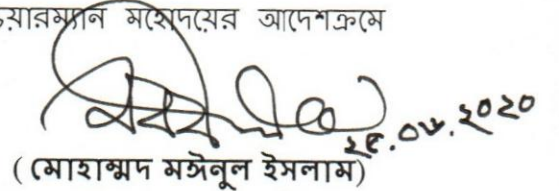 চেয়ারম্যান মহোদয়ের আদেশক্রমে
২৫.০৮.২০২০
( মোহাম্মদ মঈনুল ইসলাম)